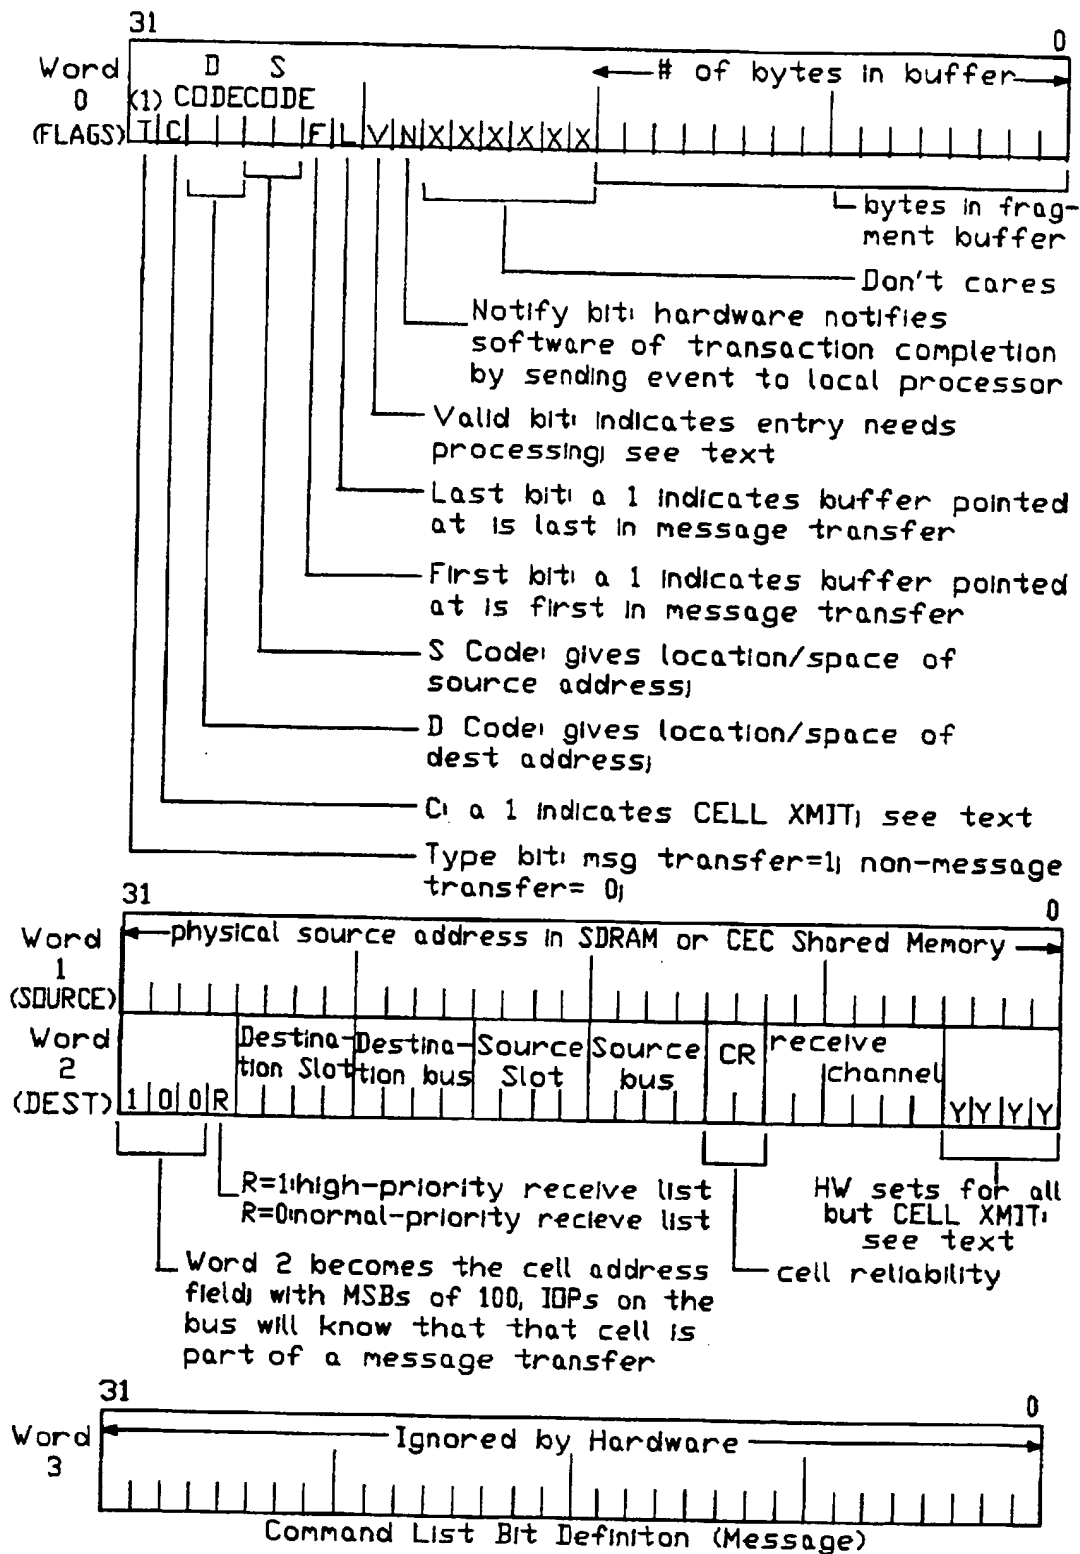 31 0
Word 0 (FLAGS)
D S
(1) CODECODE
# of bytes in buffer
T C F L V N X X X X X X
bytes in frag-
ment buffer
Don't cares
Notify bit: hardware notifies
software of transaction completion
by sending event to local processor
Valid bit: indicates entry needs
processing; see text
Last bit: a 1 indicates buffer pointed
at is last in message transfer
First bit: a 1 indicates buffer pointed
at is first in message transfer
S Code: gives location/space of
source address;
D Code: gives location/space of
dest address;
C: a 1 indicates CELL XMIT; see text
Type bit: msg transfer=1; non-message
transfer= 0;
31 0
Word 1 (SOURCE)
physical source address in SDRAM or CEC Shared Memory
Word 2 (DEST)
Destina-
tion Slot
Destina-
tion bus
Source
Slot
Source
bus
CR
receive
channel
1 0 0 R
Y Y Y Y
R=1:high-priority receive list
R=0:normal-priority recieve list
HW sets for all
but CELL XMIT:
see text
cell reliability
Word 2 becomes the cell address
field; with MSBs of 100, IOPs on the
bus will know that that cell is
part of a message transfer
31 0
Word 3
Ignored by Hardware
Command List Bit Definiton (Message)